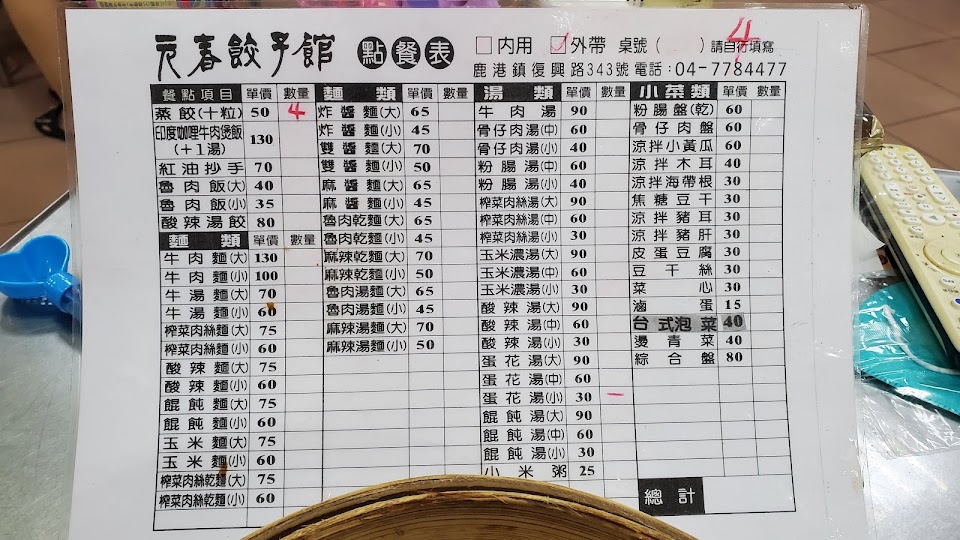 元春餃子館 點餐表 □內用 ☑外帶 桌號( ) 請自行填寫 4
鹿港鎮復興路343號 電話:04-7784477
餐點項目 單價 數量
蒸餃(十粒) 50 4
印度咖哩牛肉煲飯(+1湯) 130
紅油抄手 70
魯肉飯(大) 40
魯肉飯(小) 35
酸辣湯餃 80
麵類 單價 數量
牛肉麵(大) 130
牛肉麵(小) 100
牛湯麵(大) 70
牛湯麵(小) 60
榨菜肉絲麵(大) 75
榨菜肉絲麵(小) 60
酸辣麵(大) 75
酸辣麵(小) 60
餛飩麵(大) 75
餛飩麵(小) 60
玉米麵(大) 75
玉米麵(小) 60
榨菜肉絲乾麵(大) 75
榨菜肉絲乾麵(小) 60
麵類 單價 數量
炸醬麵(大) 65
炸醬麵(小) 45
雙醬麵(大) 70
雙醬麵(小) 50
麻醬麵(大) 65
麻醬麵(小) 45
魯肉乾麵(大) 65
魯肉乾麵(小) 45
麻辣乾麵(大) 70
麻辣乾麵(小) 50
魯肉湯麵(大) 65
魯肉湯麵(小) 45
麻辣湯麵(大) 70
麻辣湯麵(小) 50
湯類 單價 數量
牛肉湯 90
骨仔肉湯(中) 60
骨仔肉湯(小) 40
粉腸湯(中) 60
粉腸湯(小) 40
榨菜肉絲湯(大) 90
榨菜肉絲湯(中) 60
榨菜肉絲湯(小) 30
玉米濃湯(大) 90
玉米濃湯(中) 60
玉米濃湯(小) 30
酸辣湯(大) 90
酸辣湯(中) 60
酸辣湯(小) 30
蛋花湯(大) 90
蛋花湯(中) 60
蛋花湯(小) 30 一
餛飩湯(大) 90
餛飩湯(中) 60
餛飩湯(小) 30
小米粥 25
小菜類 單價 數量
粉腸盤(乾) 60
骨仔肉盤 60
涼拌小黃瓜 60
涼拌木耳 40
涼拌海帶根 30
焦糖豆干 30
涼拌豬耳 30
涼拌豬肝 30
皮蛋豆腐 30
豆干絲 30
菜心 30
滷蛋 15
台式泡菜 40
燙青菜 40
綜合盤 80
總計